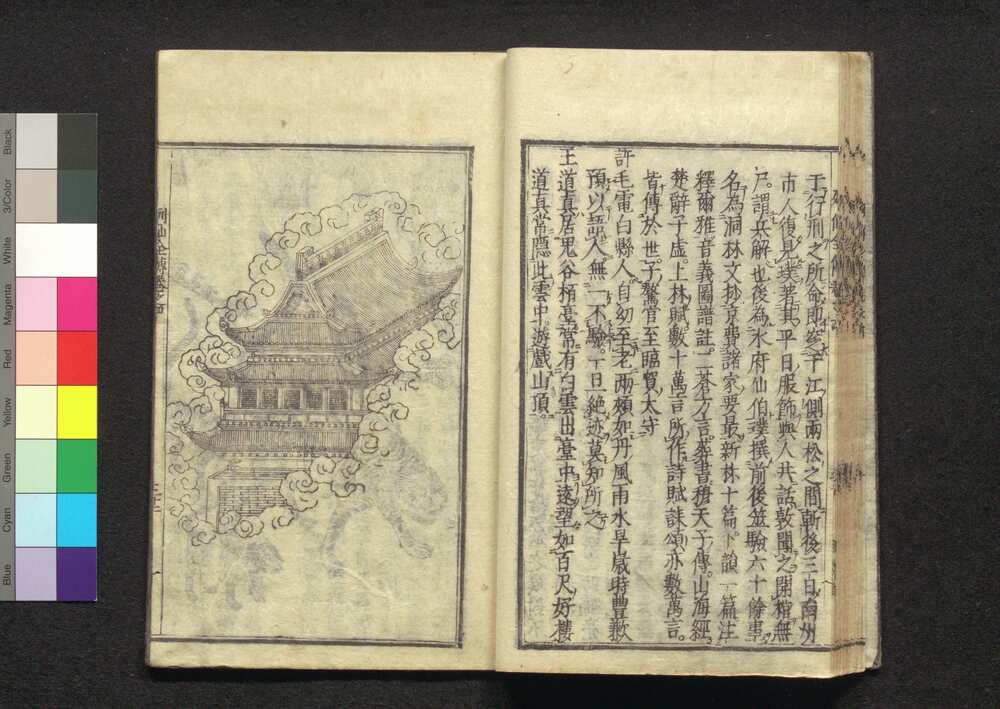 Black
3/Color
White
Magenta
Red
Yellow
Green
Cyan
Blue
于行刑之所命即參于江側兩松之間斬後三日南州
市人復見璞著其平日服飾與人共話敦聞之開棺無
尸。謂兵解也後為水府仙伯璞撰前後筮驗六十餘事
名為洞林文抄京費諸家要最新林十篇卜韻一篇注
釋爾雅音義圖譜註三蒼方言葬書穆天子傳。山海經
楚辭子虛。上林賦數十萬言所作詩賦誄頌亦數萬言。
皆傳於世。子驁官至臨賀太守
許毛電白縣人自幼至老兩頰如丹風雨水旱歲時豐歉
預以語人無一不驗。一日絕迹莫知所之
王道真居鬼谷栖亭常有白雲出臺中遠望如百尺好樓
道真常隱此雲中遊戲山頂。
列仙全傳卷之